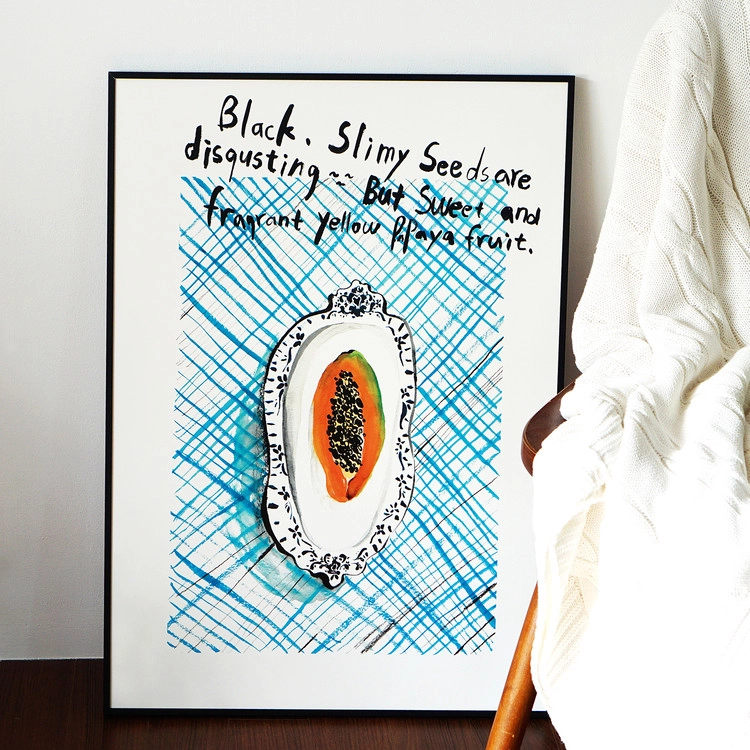 Black. Slimy Seeds are
disgusting ~~ But Sweet and
fragrant yellow Papaya fruit.